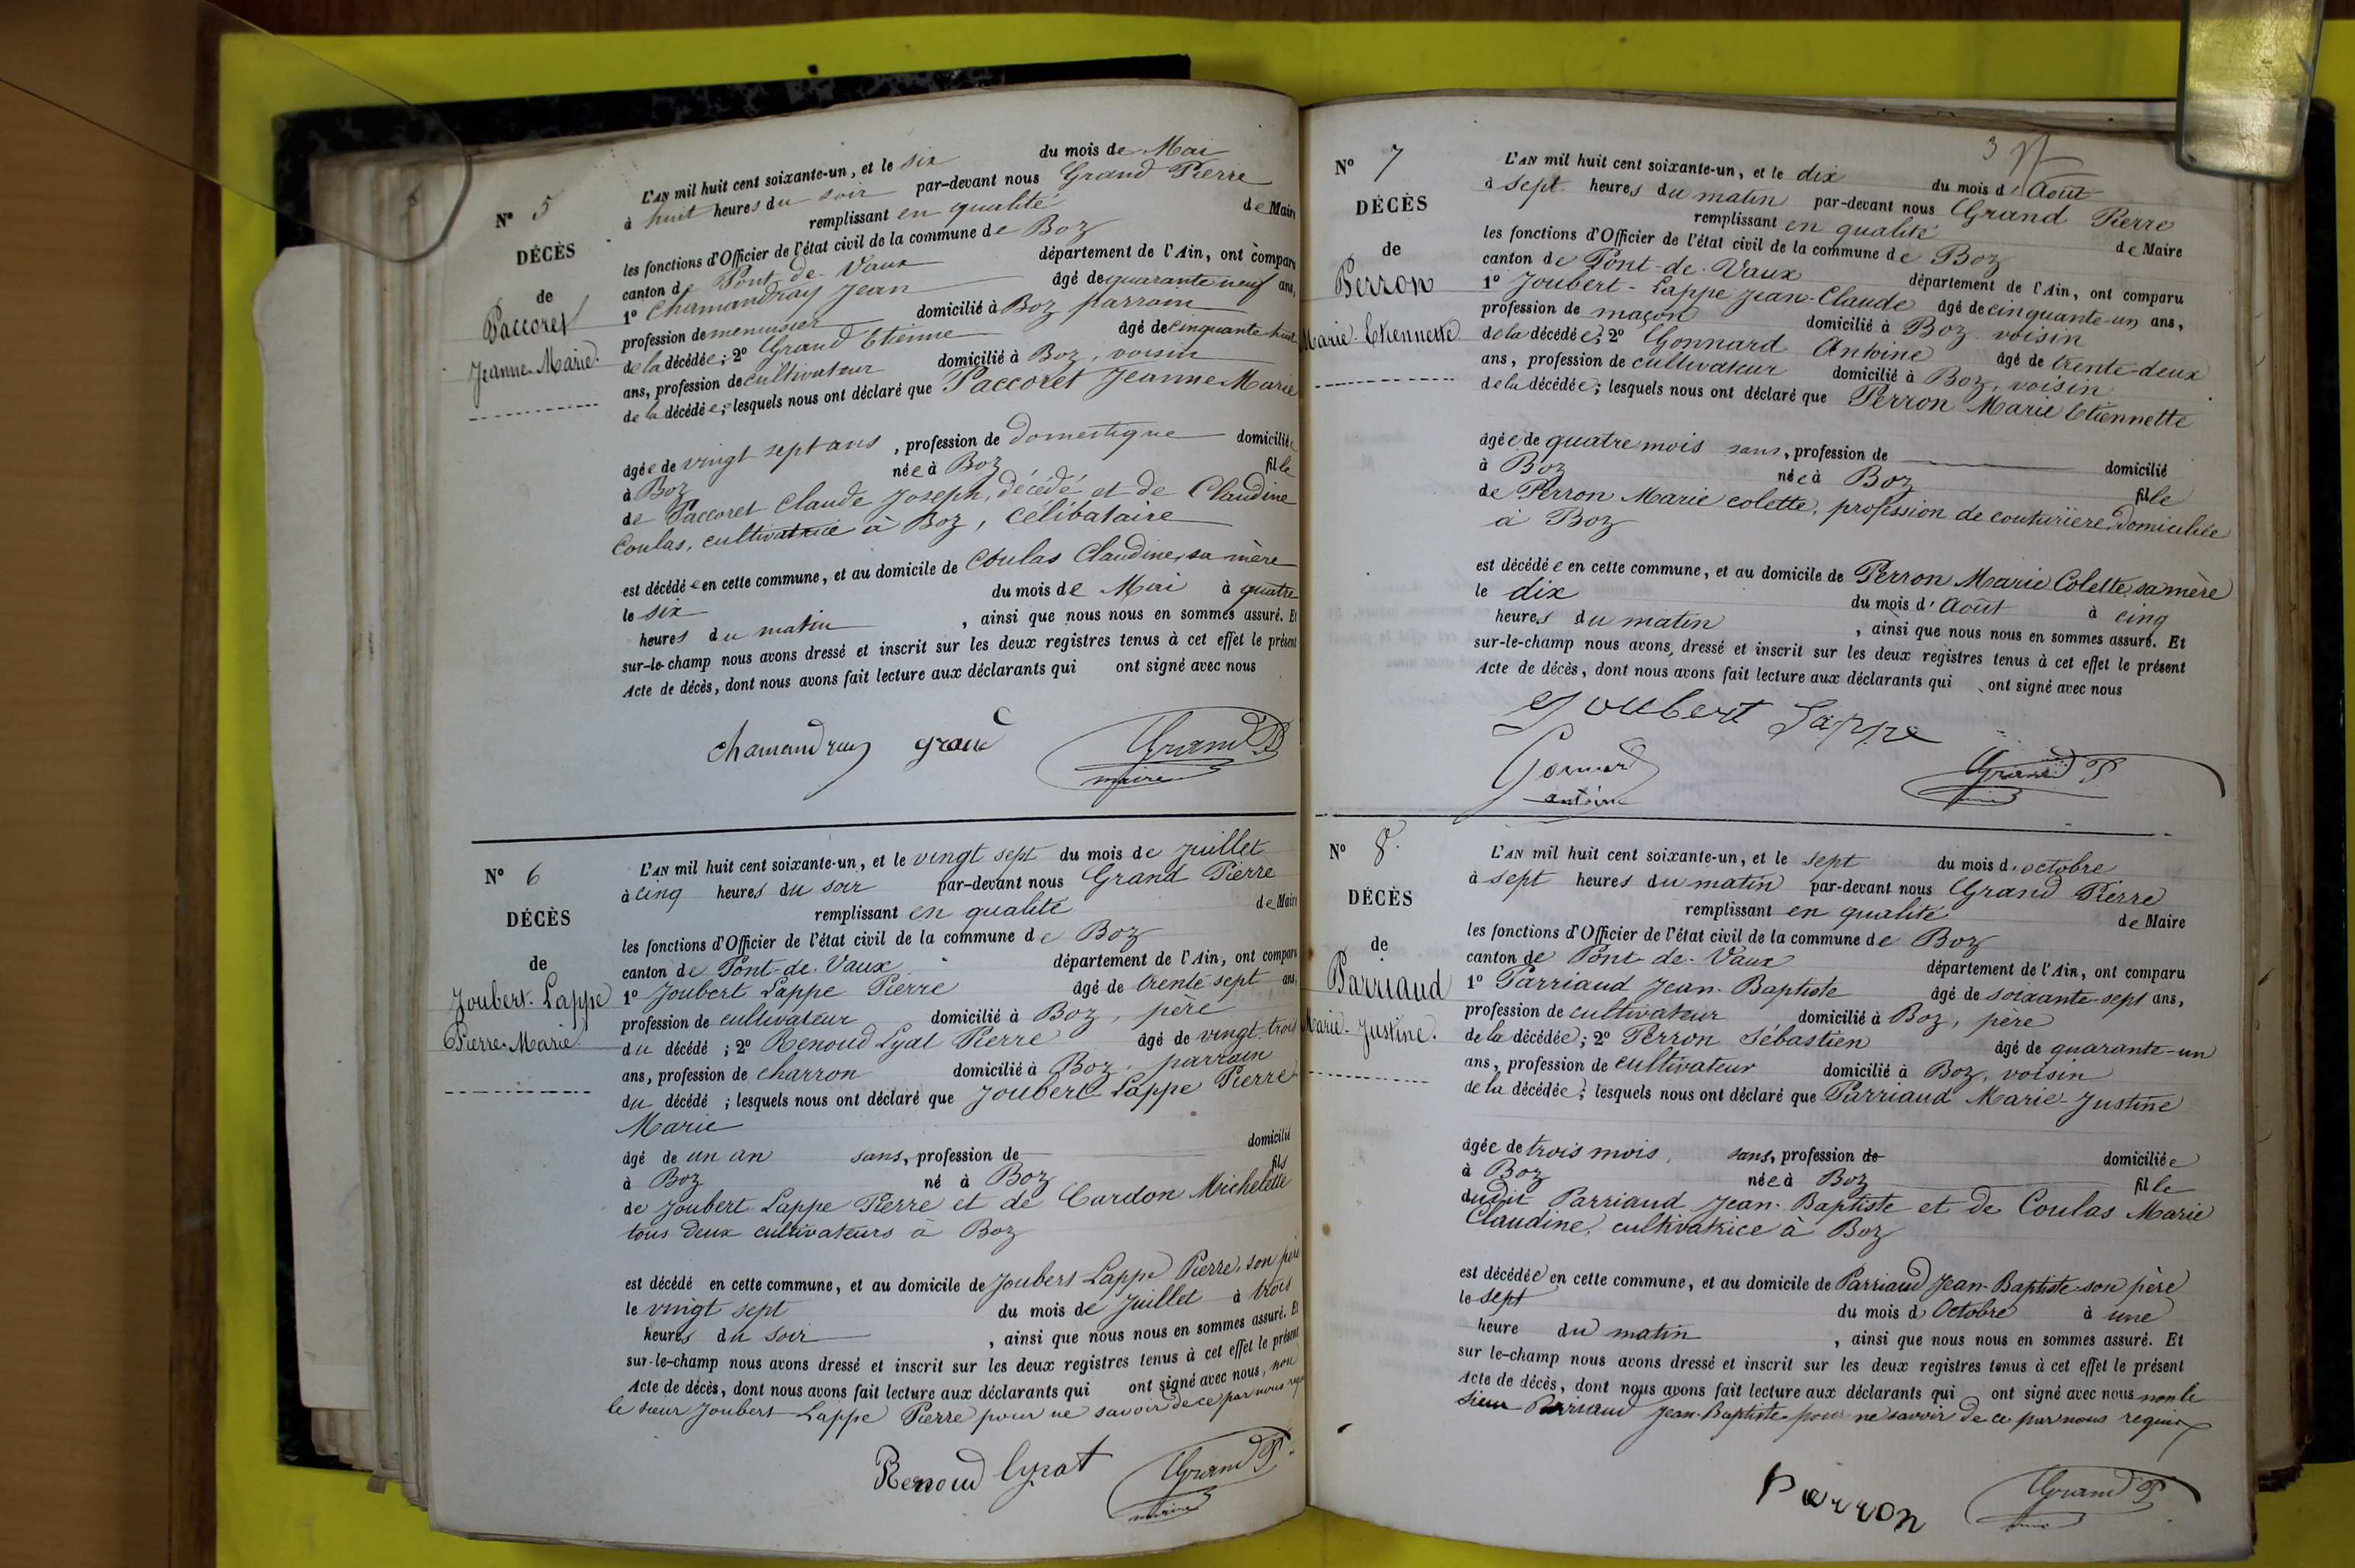 N° 5
DÉCÈS
de
Paccoret
Jeanne Marie.
L'AN mil huit cent soixante-un, et le six du mois de Mai
à huit heures du soir par-devant nous Grand Pierre
remplissant en qualité de Maire
les fonctions d'Officier de l'état civil de la commune de Boz
canton de Pont-de-Vaux département de l'Ain, ont comparu
1° Chamandray Jean âgé de quarante neuf ans,
profession de menuisier domicilié à Boz parrain
de la décédée; 2° Grand Etienne âgé de cinquante huit
ans, profession de cultivateur domicilié à Boz, voisin
de la décédée; lesquels nous ont déclaré que Paccoret Jeanne Marie
âgée de vingt sept ans, profession de domestique domiciliée
à Boz née à Boz fille
de Paccoret Claude Joseph, décédé et de Claudine
Coulas, cultivatrice à Boz, célibataire
est décédée en cette commune, et au domicile de Coulas Claudine, sa mère
le six du mois de Mai à quatre
heures du matin, ainsi que nous nous en sommes assuré. Et
sur-le-champ nous avons dressé et inscrit sur les deux registres tenus à cet effet le présent
Acte de décès, dont nous avons fait lecture aux déclarants qui ont signé avec nous
chamandray grand e Grand P
maire
N° 6
DÉCÈS
de
Joubert-Lappe
Pierre-Marie
L'AN mil huit cent soixante-un, et le vingt sept du mois de Juillet
à cinq heures du soir par-devant nous Grand Pierre
remplissant en qualité de Maire
les fonctions d'Officier de l'état civil de la commune de Boz
canton de Pont-de-Vaux département de l'Ain, ont comparu
1° Joubert Lappe Pierre âgé de trente sept ans,
profession de cultivateur domicilié à Boz, père
du décédé; 2° Renoud Lyat Pierre âgé de vingt-trois
ans, profession de charron domicilié à Boz, parrain
du décédé; lesquels nous ont déclaré que Joubert Lappe Pierre
Marie
âgé de un an sans, profession de domicilié
à Boz né à Boz fils
de Joubert-Lappe Pierre et de Cardon Michelette
tous deux cultivateurs à Boz
est décédé en cette commune, et au domicile de Joubert-Lappe Pierre, son père
le vingt sept du mois de Juillet à trois
heures du soir, ainsi que nous nous en sommes assuré. Et
sur-le-champ nous avons dressé et inscrit sur les deux registres tenus à cet effet le présent
Acte de décès, dont nous avons fait lecture aux déclarants qui ont signé avec nous, non
le sieur Joubert-Lappe Pierre pour ne savoir de ce par nous requis
Renoud lyat Grand P.
maire
3
N° 7
DÉCÈS
de
Perron
Marie-Etiennette
L'AN mil huit cent soixante-un, et le dix du mois d'Août
à sept heures du matin par-devant nous Grand Pierre
remplissant en qualité de Maire
les fonctions d'Officier de l'état civil de la commune de Boz
canton de Pont-de-Vaux département de l'Ain, ont comparu
1° Joubert-Lappe Jean-Claude âgé de cinquante-un ans,
profession de maçon domicilié à Boz voisin
de la décédée; 2° Gonnard Antoine âgé de trente-deux
ans, profession de cultivateur domicilié à Boz, voisin
de la décédée; lesquels nous ont déclaré que Perron Marie Etiennette
âgée de quatre mois sans, profession de domicilié
à Boz née à Boz fille
de Perron Marie colette, profession de couturière, domiciliée
à Boz
est décédée en cette commune, et au domicile de Perron Marie Colette, sa mère
le dix du mois d'Août à cinq
heures du matin, ainsi que nous nous en sommes assuré. Et
sur-le-champ nous avons dressé et inscrit sur les deux registres tenus à cet effet le présent
Acte de décès, dont nous avons fait lecture aux déclarants qui ont signé avec nous
Joubert Lappe
Gonnard
antoine
Grand P
N° 8.
DÉCÈS
de
Parriaud
Marie-Justine.
L'AN mil huit cent soixante-un, et le sept du mois d'octobre
à sept heures du matin par-devant nous Grand Pierre
remplissant en qualité de Maire
les fonctions d'Officier de l'état civil de la commune de Boz
canton de Pont-de-Vaux département de l'Ain, ont comparu
1° Parriaud Jean-Baptiste âgé de soixante-sept ans,
profession de cultivateur domicilié à Boz, père
de la décédée; 2° Perron Sébastien âgé de quarante-un
ans, profession de cultivateur domicilié à Boz, voisin
de la décédée; lesquels nous ont déclaré que Parriaud Marie-Justine
âgée de trois mois, sans, profession de domiciliée
à Boz née à Boz fille
dudit Parriaud Jean-Baptiste et de Coulas Marie
Claudine, cultivatrice à Boz
est décédée en cette commune, et au domicile de Parriaud Jean-Baptiste son père
le sept du mois d'Octobre à une
heure du matin, ainsi que nous nous en sommes assuré. Et
sur le-champ nous avons dressé et inscrit sur les deux registres tenus à cet effet le présent
Acte de décès, dont nous avons fait lecture aux déclarants qui ont signé avec nous non le
sieur Parriaud Jean-Baptiste pour ne savoir de ce par nous requis
Parron Grand P